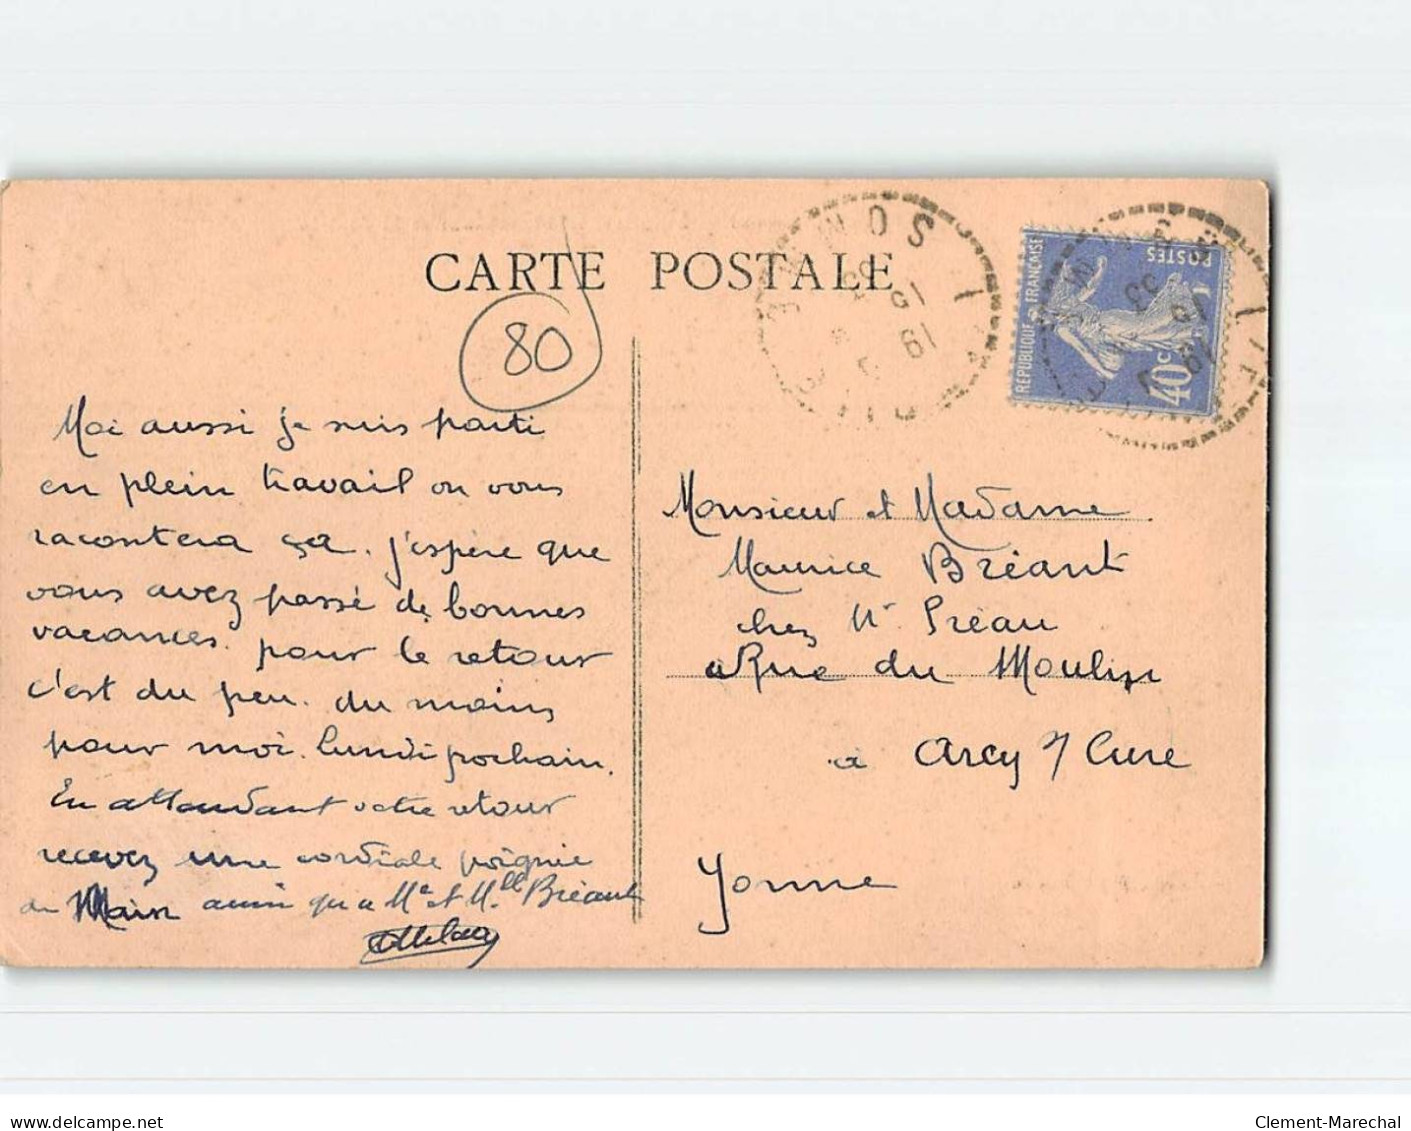 CARTE POSTALE
80
Moi aussi je suis parti
en plein travail on vous
racontera ça. j'espère que
vous avez passé de bonnes
vacances. pour le retour
c'est du peu. du moins
pour moi. lundi prochain.
En attendant votre retour
recevez une cordiale poignie
de Main ainsi qu'a Me et Mlle Bréant
RÉPUBLIQUE FRANÇAISE
POSTES
40c
19
33
Monsieur et Madame
Maurice Bréant
chez Mr Préau
Rue du Moulin
a Arcy s/ Cure
Yonne
www.delcampe.net
Clement-Marechal